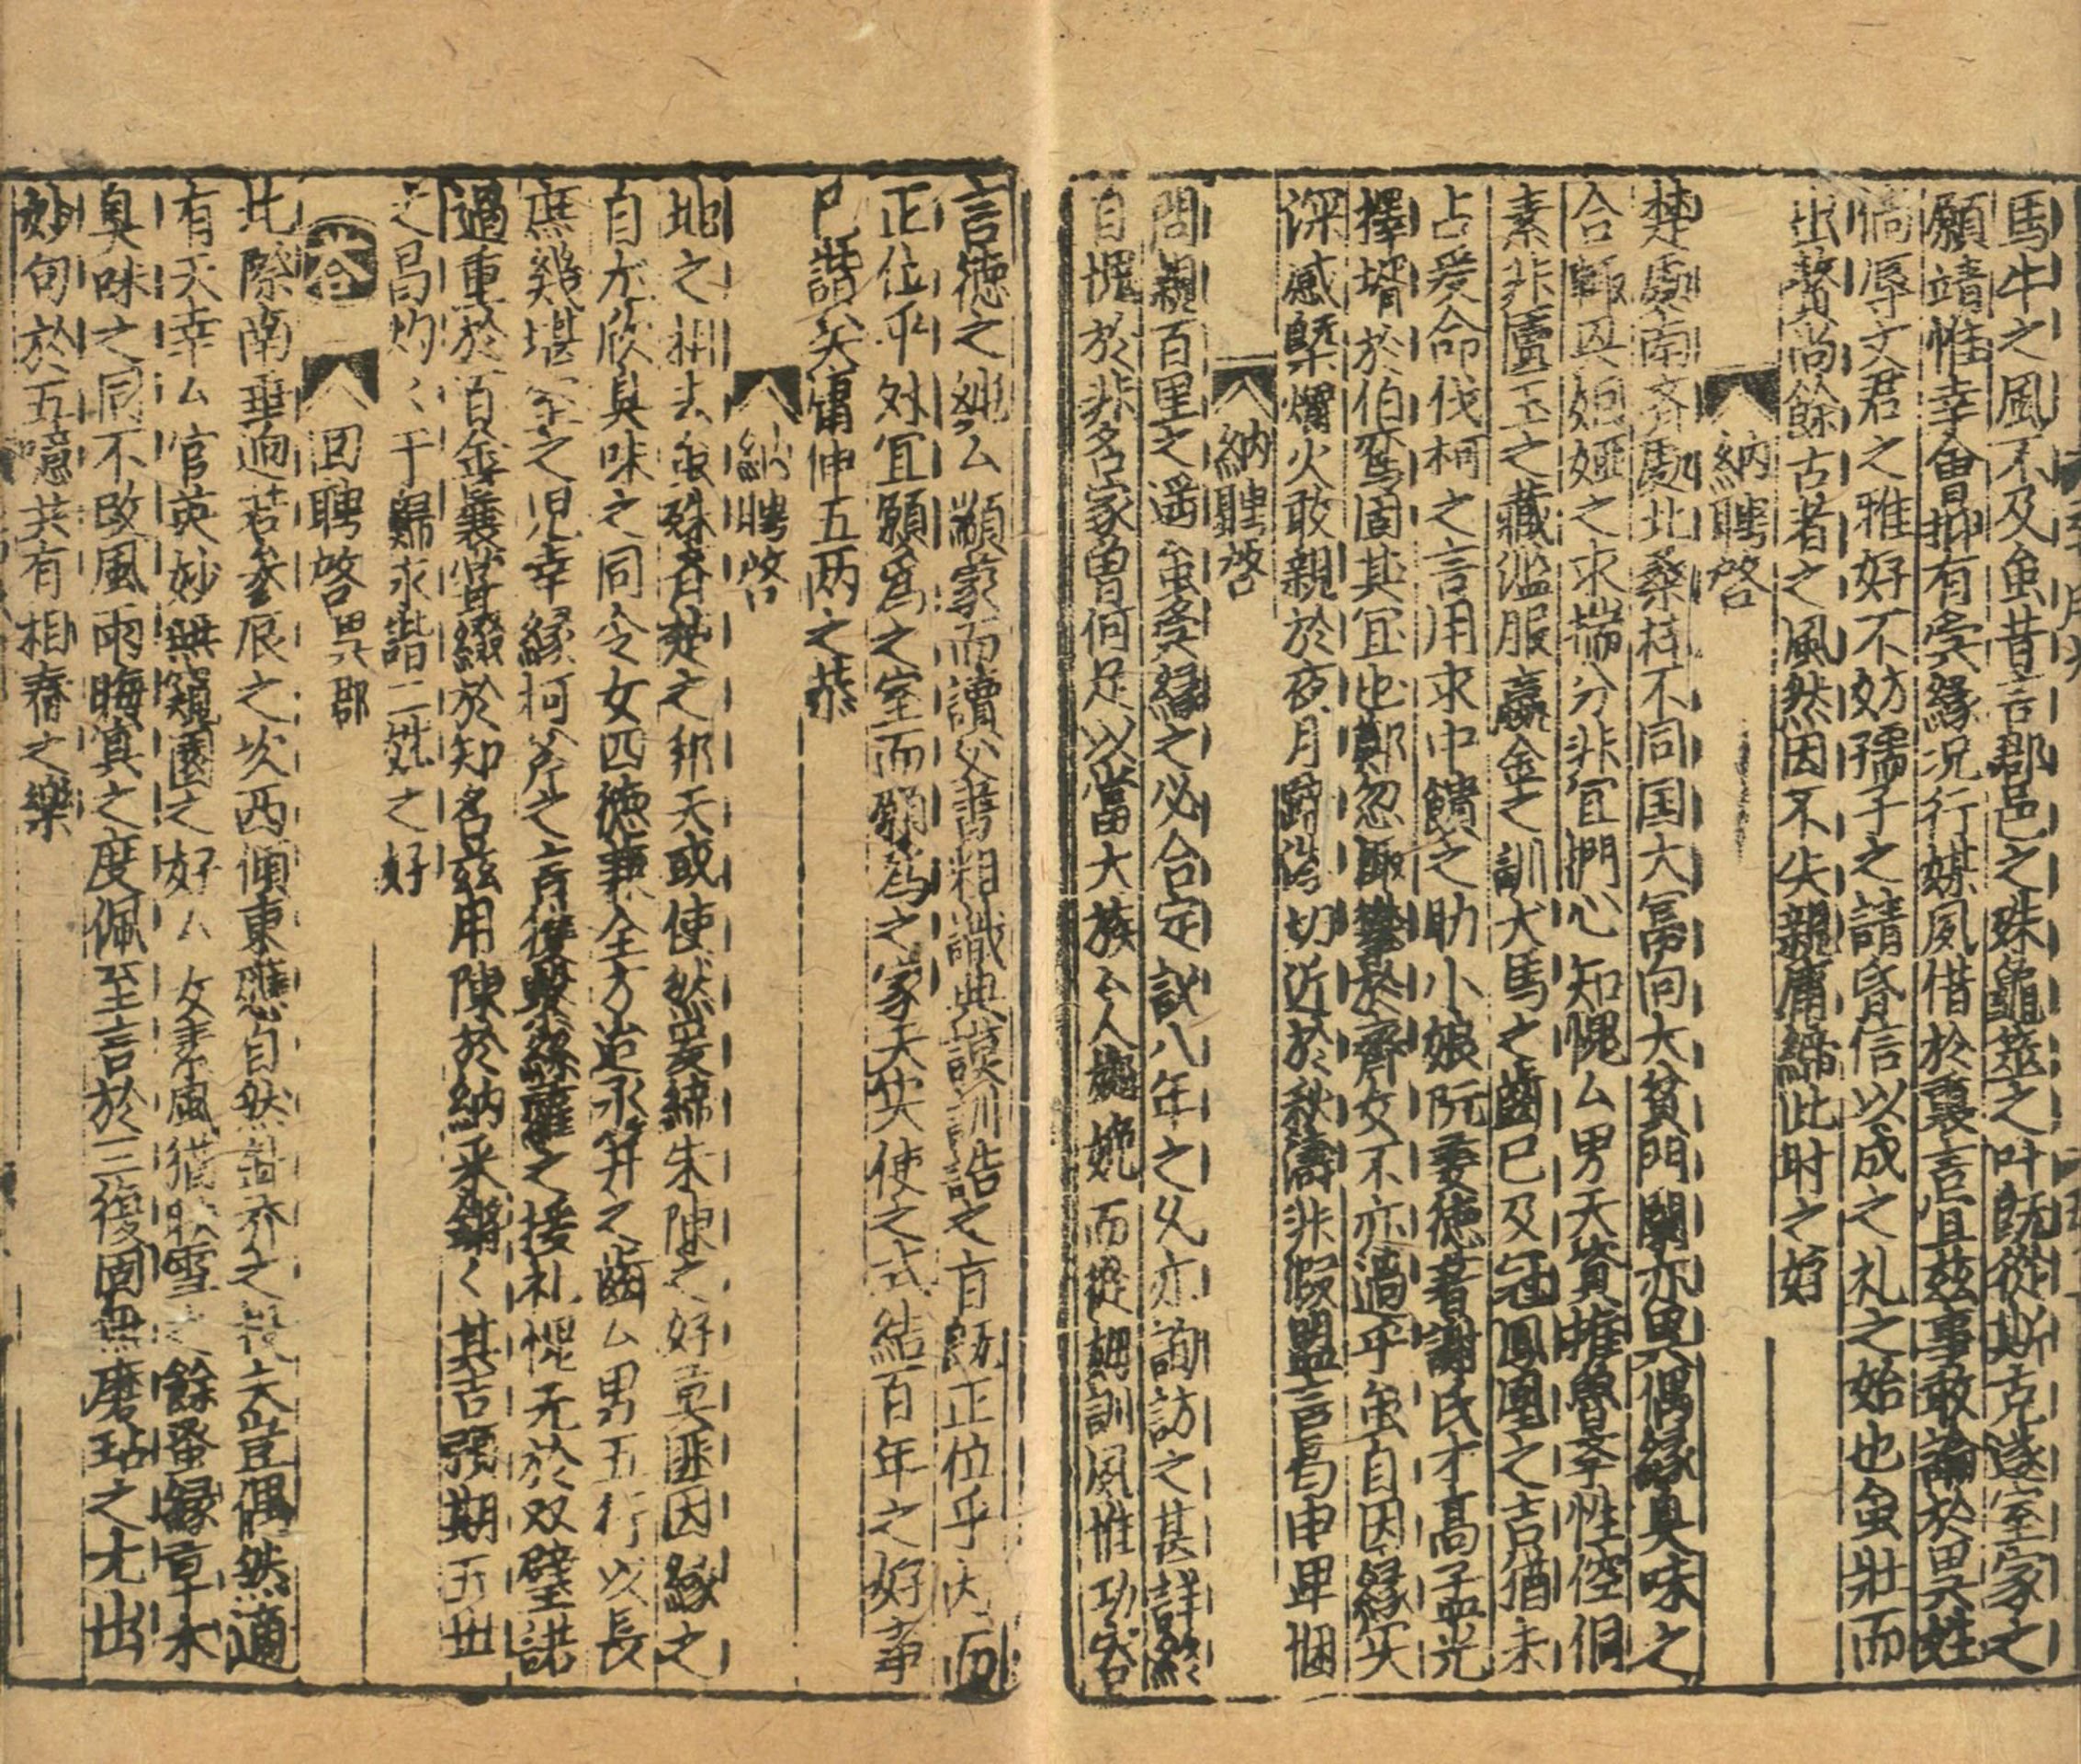 馬牛之風不及虽昔言郡邑之殊龜筮之叶既從斯克遂室家之
願靖惟幸會抑有夤緣况行媒夙借於褒言宜兹事敢論於異姓
倘辱文君之雅好不妨孺子之請昏信以成之礼之始也虽壯而
出贅尚餘古者之風然因不失親庸締此时之好
納聘啓
楚處南齐處北桑梓不同国大冨向大貧門闌亦異偶緣臭味之
合輙興姻婭之求揣分非宜捫心知愧厶男天資椎魯学性倥侗
素非匵玉之藏滥服籯金之訓犬馬之齒已及冠鳳凰之吉猶未
占爰命伐柯之言用求中饋之助小娘阮妻德著謝氏才高孟光
擇壻於伯鸞固其冝也鄭忽娵攀於齊女不亦過乎虽自因緣实
深感槩爝火敢親於夜月蹄涔切近於秋濤非假盟言曷申卑悃
納聘啓
問親百里之遥虽受緣之必合定訧八年之久亦詢訪之甚詳終
自愧於非名家曾何足以當大族厶人婉娩而從姆訓風惟功容
言德之純厶颛蒙而讀父書粗識典謨訓誥之旨既正位乎内而
正位乎外冝願爲之室而願爲之家天实使之式結百年之好事
已諧矣庸伸五两之恭
納聘啓
地之相去虽殊吝楚之邦天或使然爰締朱陳之好莫匪因緣之
自亦欣臭味之同令女四德兼全方迨永笄之齒厶男五行以長
庶幾堪室之児幸緣柯斧之言復繫絲蘿之援礼愧无於双璧諾
過重於百金囊嘗綴於知名兹用陳於納采鏘〻其吉頚期五世
之昌灼〻于歸永諧二姓之好
荅
回聘啓異郡
北際南垂逈若參辰之坎西傾東應自然齐之役夫豈偶然適
有天幸厶官英妙無窺園之好厶女素風猶咏雪之餘蚤緣草木
臭味之同不改風雨晦冥之度佩至言於三復固無磨玷之尤出
妙句於五噫共有相舂之樂